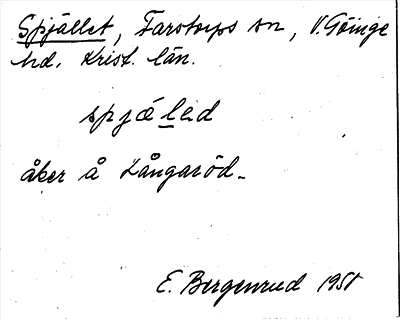 Spjället, Farstorps sn, V. Göinge
hd. Krist. län.
spjæled
åker å Långaröd.
E. Bergenrud 1951